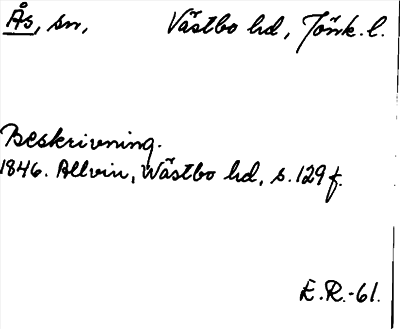 Ås, sn, Västbo hd, Jönk. l.
Beskrivning.
1846. Allvin, Wästbo hd, s. 129 f.
E.R.-61.